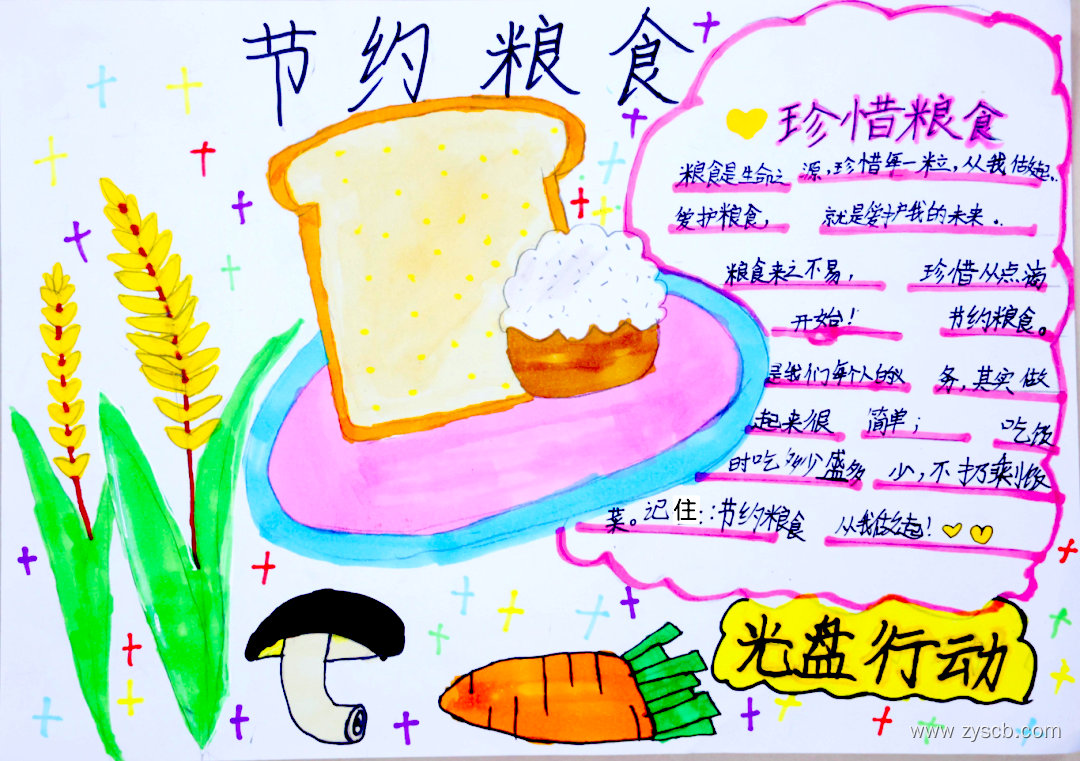 节约粮食
珍惜粮食
粮食是生命之源,珍惜每一粒,从我做起.
爱护粮食, 就是爱护我的未来..
粮食来之不易, 珍惜从点滴
开始! 节约粮食。
是我们每个人的义务,其实做
起来很简单; 吃饭
时吃多少盛多少,不扔剩饭
菜。记住:节约粮食 从我做起!
光盘行动
www.zyscb.com